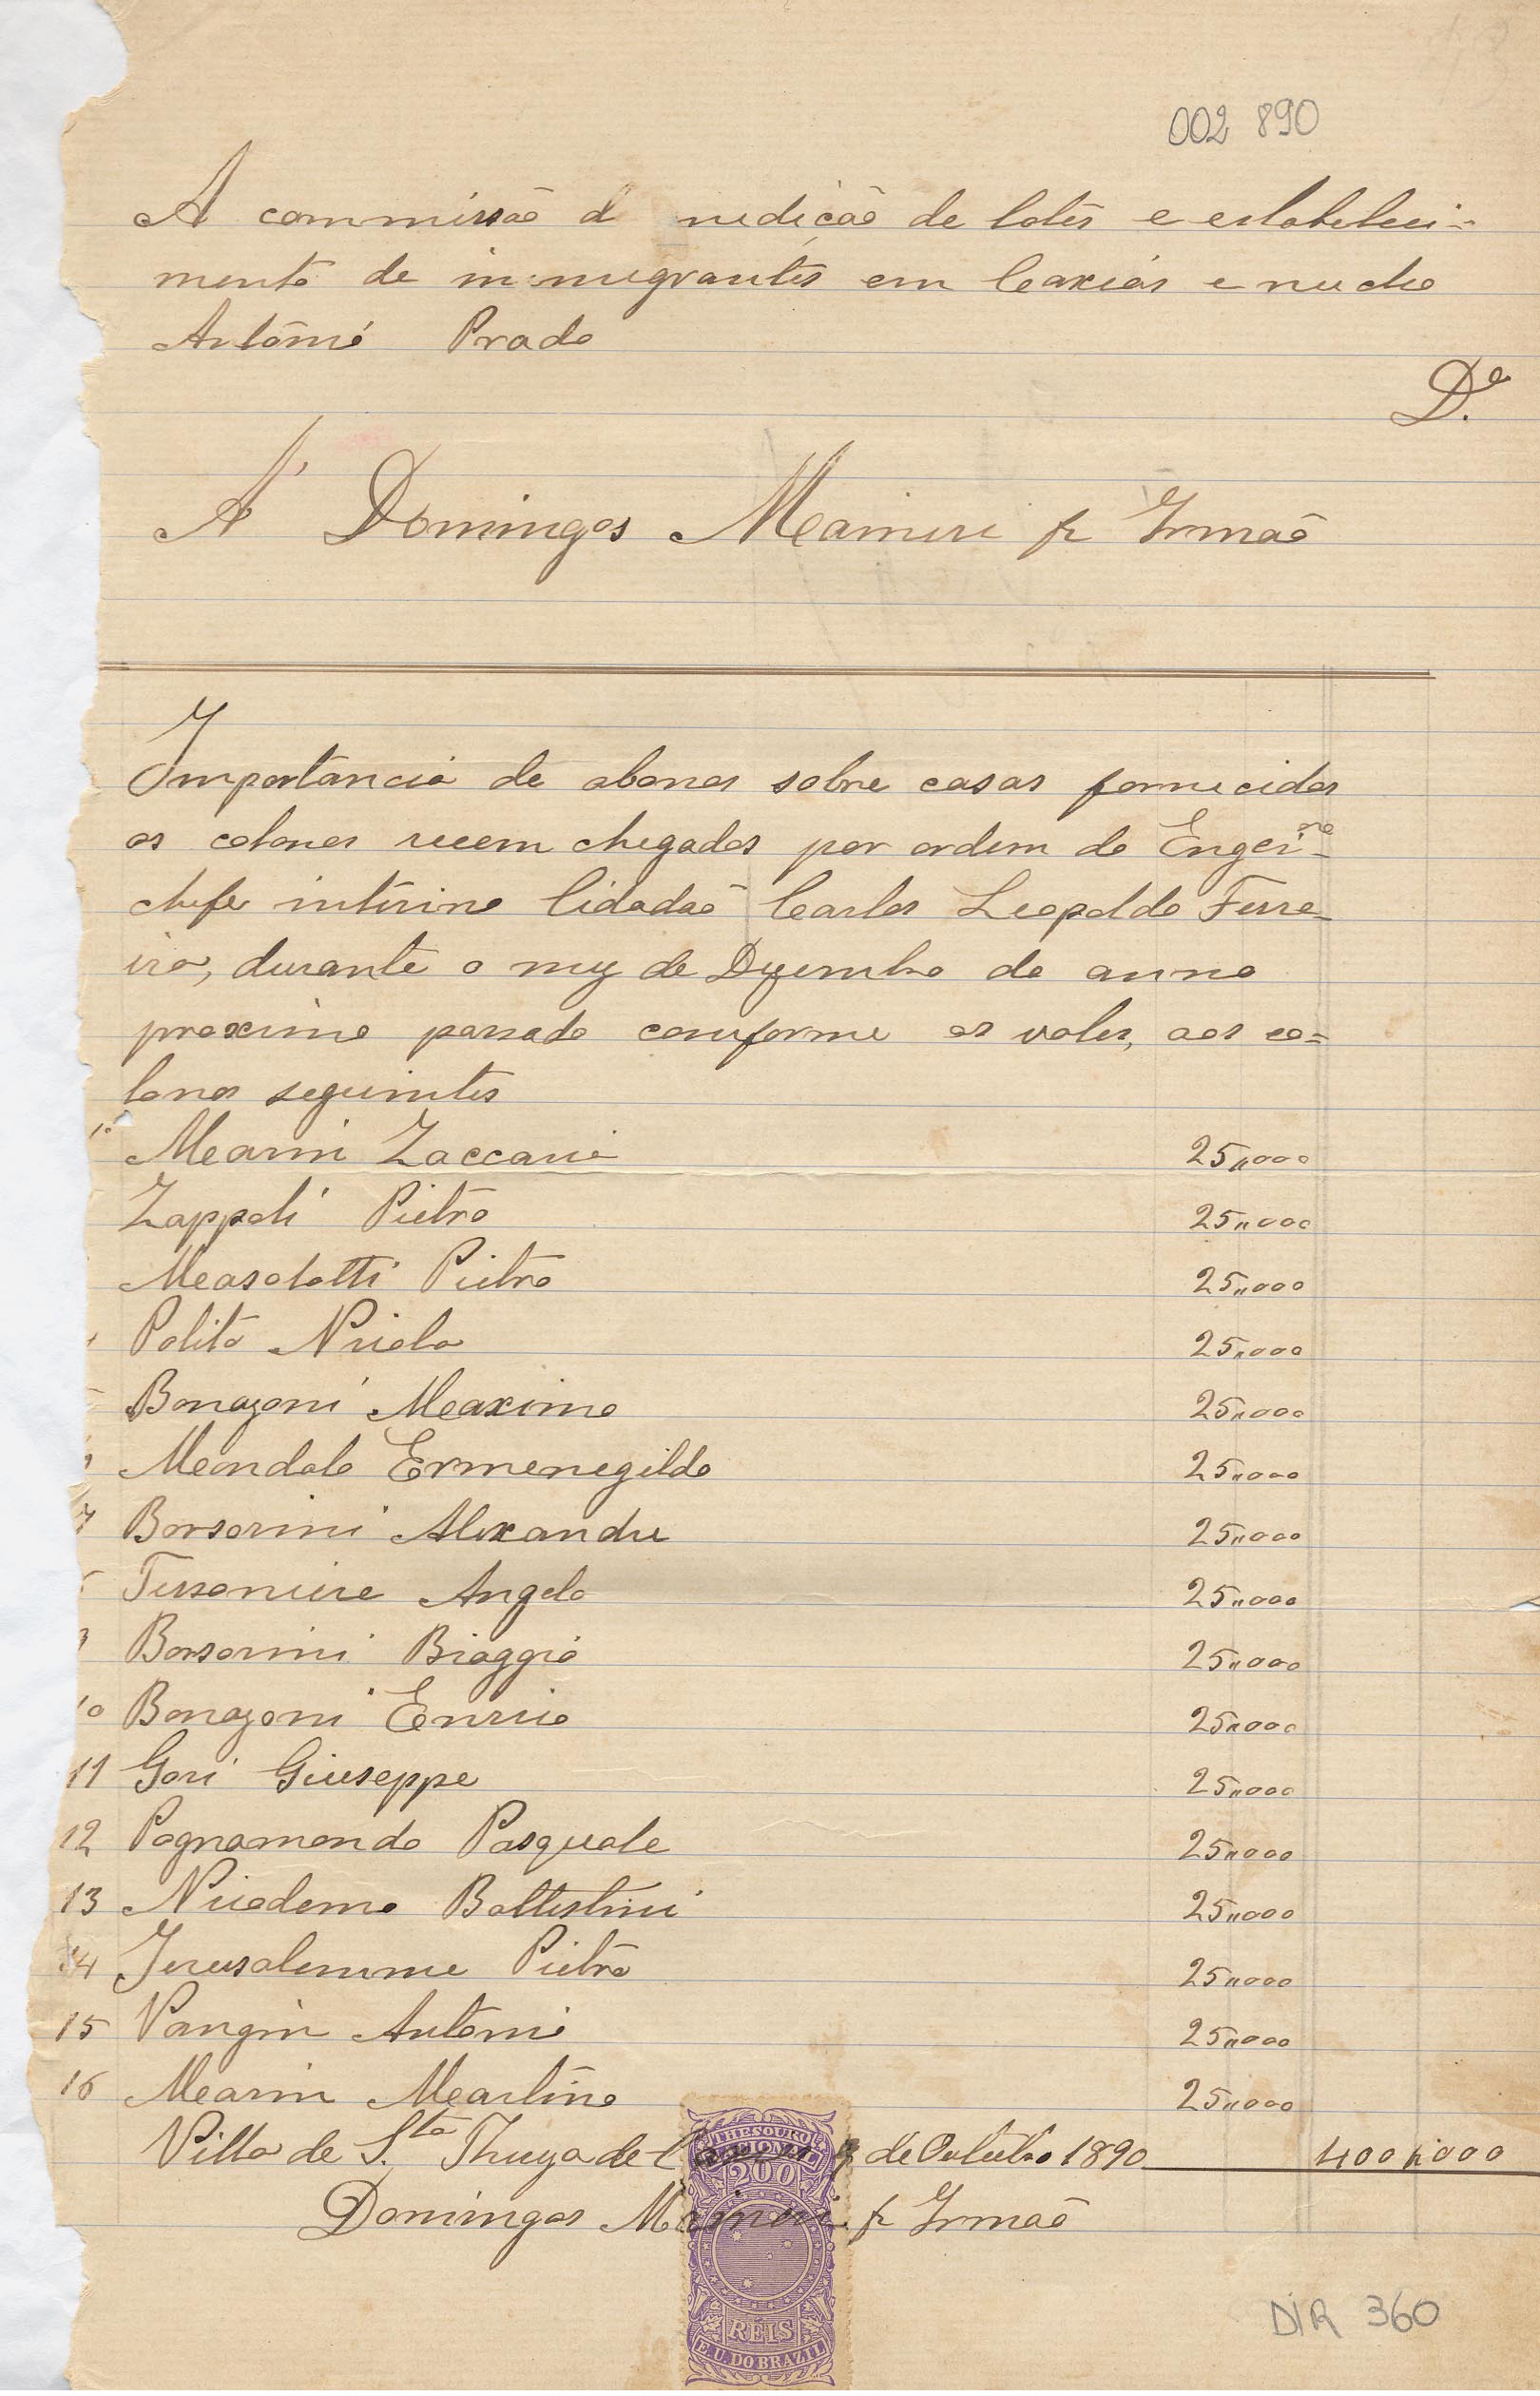 002 890
A commissão d medicão de lotes e estabeleci-
mento de immigrantes em Caxias e nucleo
Antonio Prado
D.e
A' Domingos Maineri & Irmaõ
Importancia de abonos sobre casas fornecidas
os colonos recem chegados por ordem do Engei.ro
chefe interino Cidadaõ Carlos Leopoldo Ferre-
ira, durante o mez de Dezembro do anno
proximo passado conforme os vales, aos co=
lonos seguintes
1º Marin Zaccaria 25,,000
Zappoli Pietro 25,,000
Masolotti Pietro 25,,000
Polito Nicola 25,,000
Bonazoni Maximo 25,,000
Mandalo Ermenegildo 25,,000
7 Borsarini Alexandre 25,,000
Angelo 25,,000
9 Borsarini Biaggio 25,,000
10 Bonazoni Enrico 25,,000
11 Gori Giuseppe 25,,000
12 Pagnamondo Pasquale 25,,000
13 Nicodemo Battistini 25,,000
14 Jerusalemme Pietro 25,,000
15 Vangin Antonio 25,,000
16 Marin Martino 25,,000
Villa de S.ta Thereza de de Outubro 1890 400,,000
Domingos Maineri & Irmaõ
THESOURO NACIONAL
200
RÉIS
E. U. DO BRAZIL
DIR 360